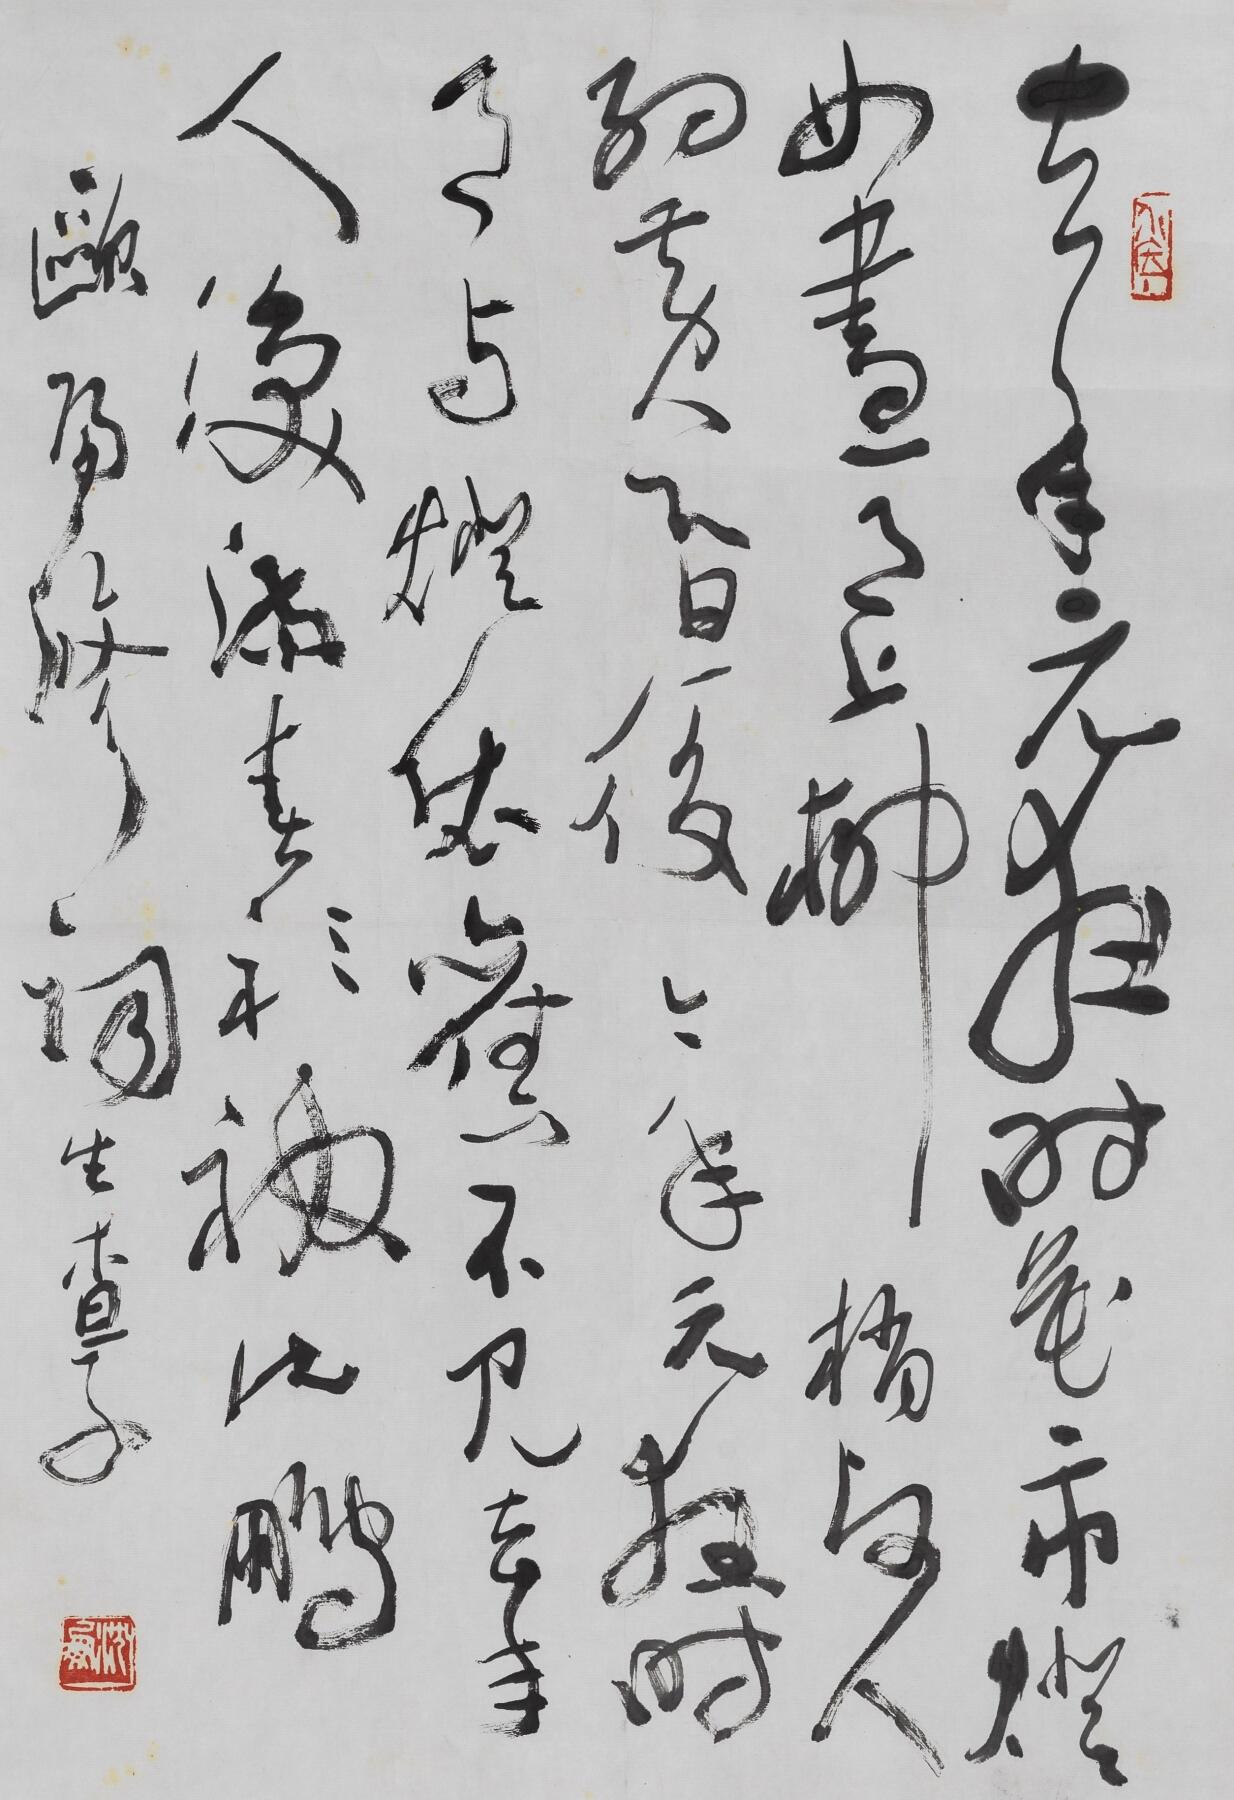 去年元夜時花市燈
如晝月上柳梢頭人
約黄昏後今年元夜時
月与燈依舊不見去年
人淚濕春衫袖沈鵬
歐陽修詞生查子